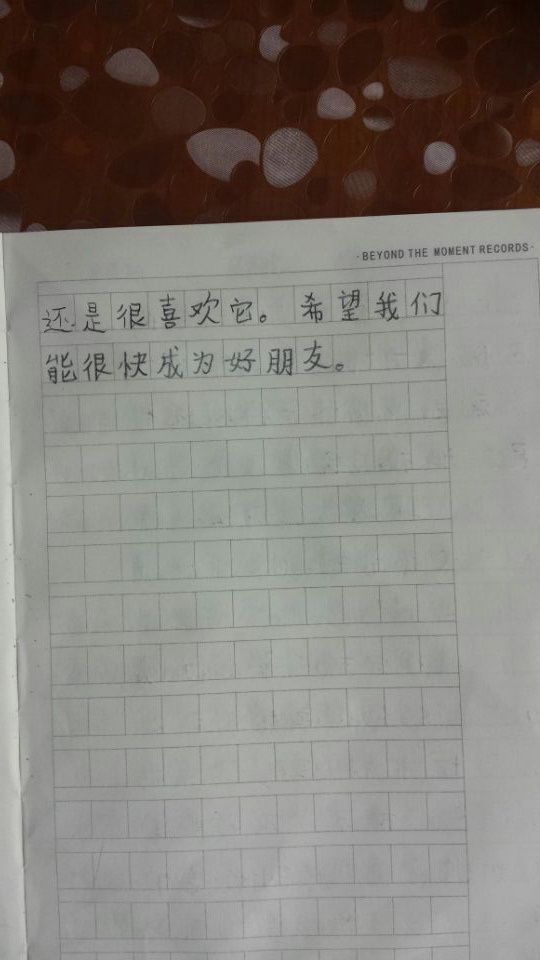 ·BEYOND THE MOMENT RECORDS·
还是很喜欢它。希望我们
能很快成为好朋友。